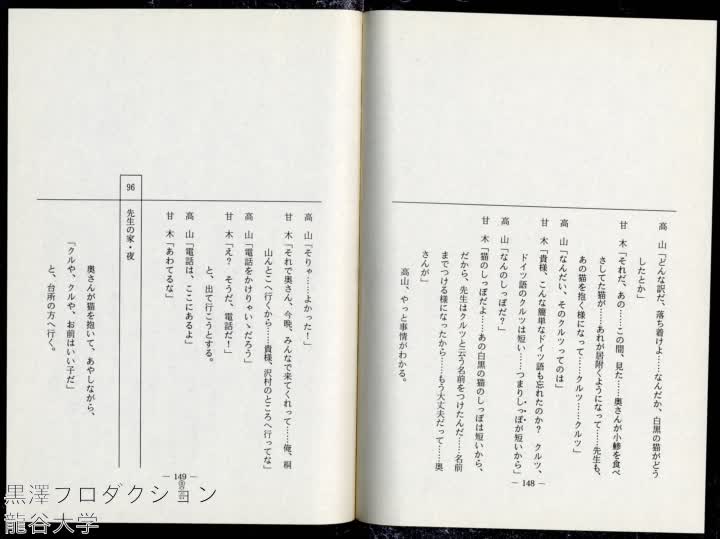 高　山「どんな訳だ、落ち着けよ……なんだか、白黒の猫がどう
したとか」
甘　木「それだ、あの……この間、見た……奥さんが小鯵を食べ
さしてた猫が……あれが居附くようになって……先生も、
あの猫を抱く様になって……クルツ……クルツ」
高　山「なんだい、そのクルツってのは」
甘　木「貴様、こんな簡単なドイツ語も忘れたのか？　クルツ、
ドイツ語のクルツは短い……つまりしっぽが短いから」
高　山「なんのしっぽだ？」
甘　木「猫のしっぽだよ……あの白黒の猫のしっぽは短いから、
だから、先生はクルツと云う名前をつけたんだ……名前
までつける様になったから……もう大丈夫だって……奥
さんが」
高山、やっと事情がわかる。
— 148 —
高　山「そりゃ……よかった！」
甘　木「それで奥さん、今晩、みんなで来てくれって……俺、桐
山んとこへ行くから……貴様、沢村のところへ行ってな」
高　山「電話をかけりゃいゝだろう」
甘　木「え？　そうだ、電話だ！」
と、出て行こうとする。
高　山「電話は、ここにあるよ」
甘　木「あわてるな」
96　先生の家・夜
奥さんが猫を抱いて、あやしながら、
「クルや、クルや、お前はいい子だ」
と、台所の方へ行く。
— 149 —
黒澤プロダクション
龍谷大学